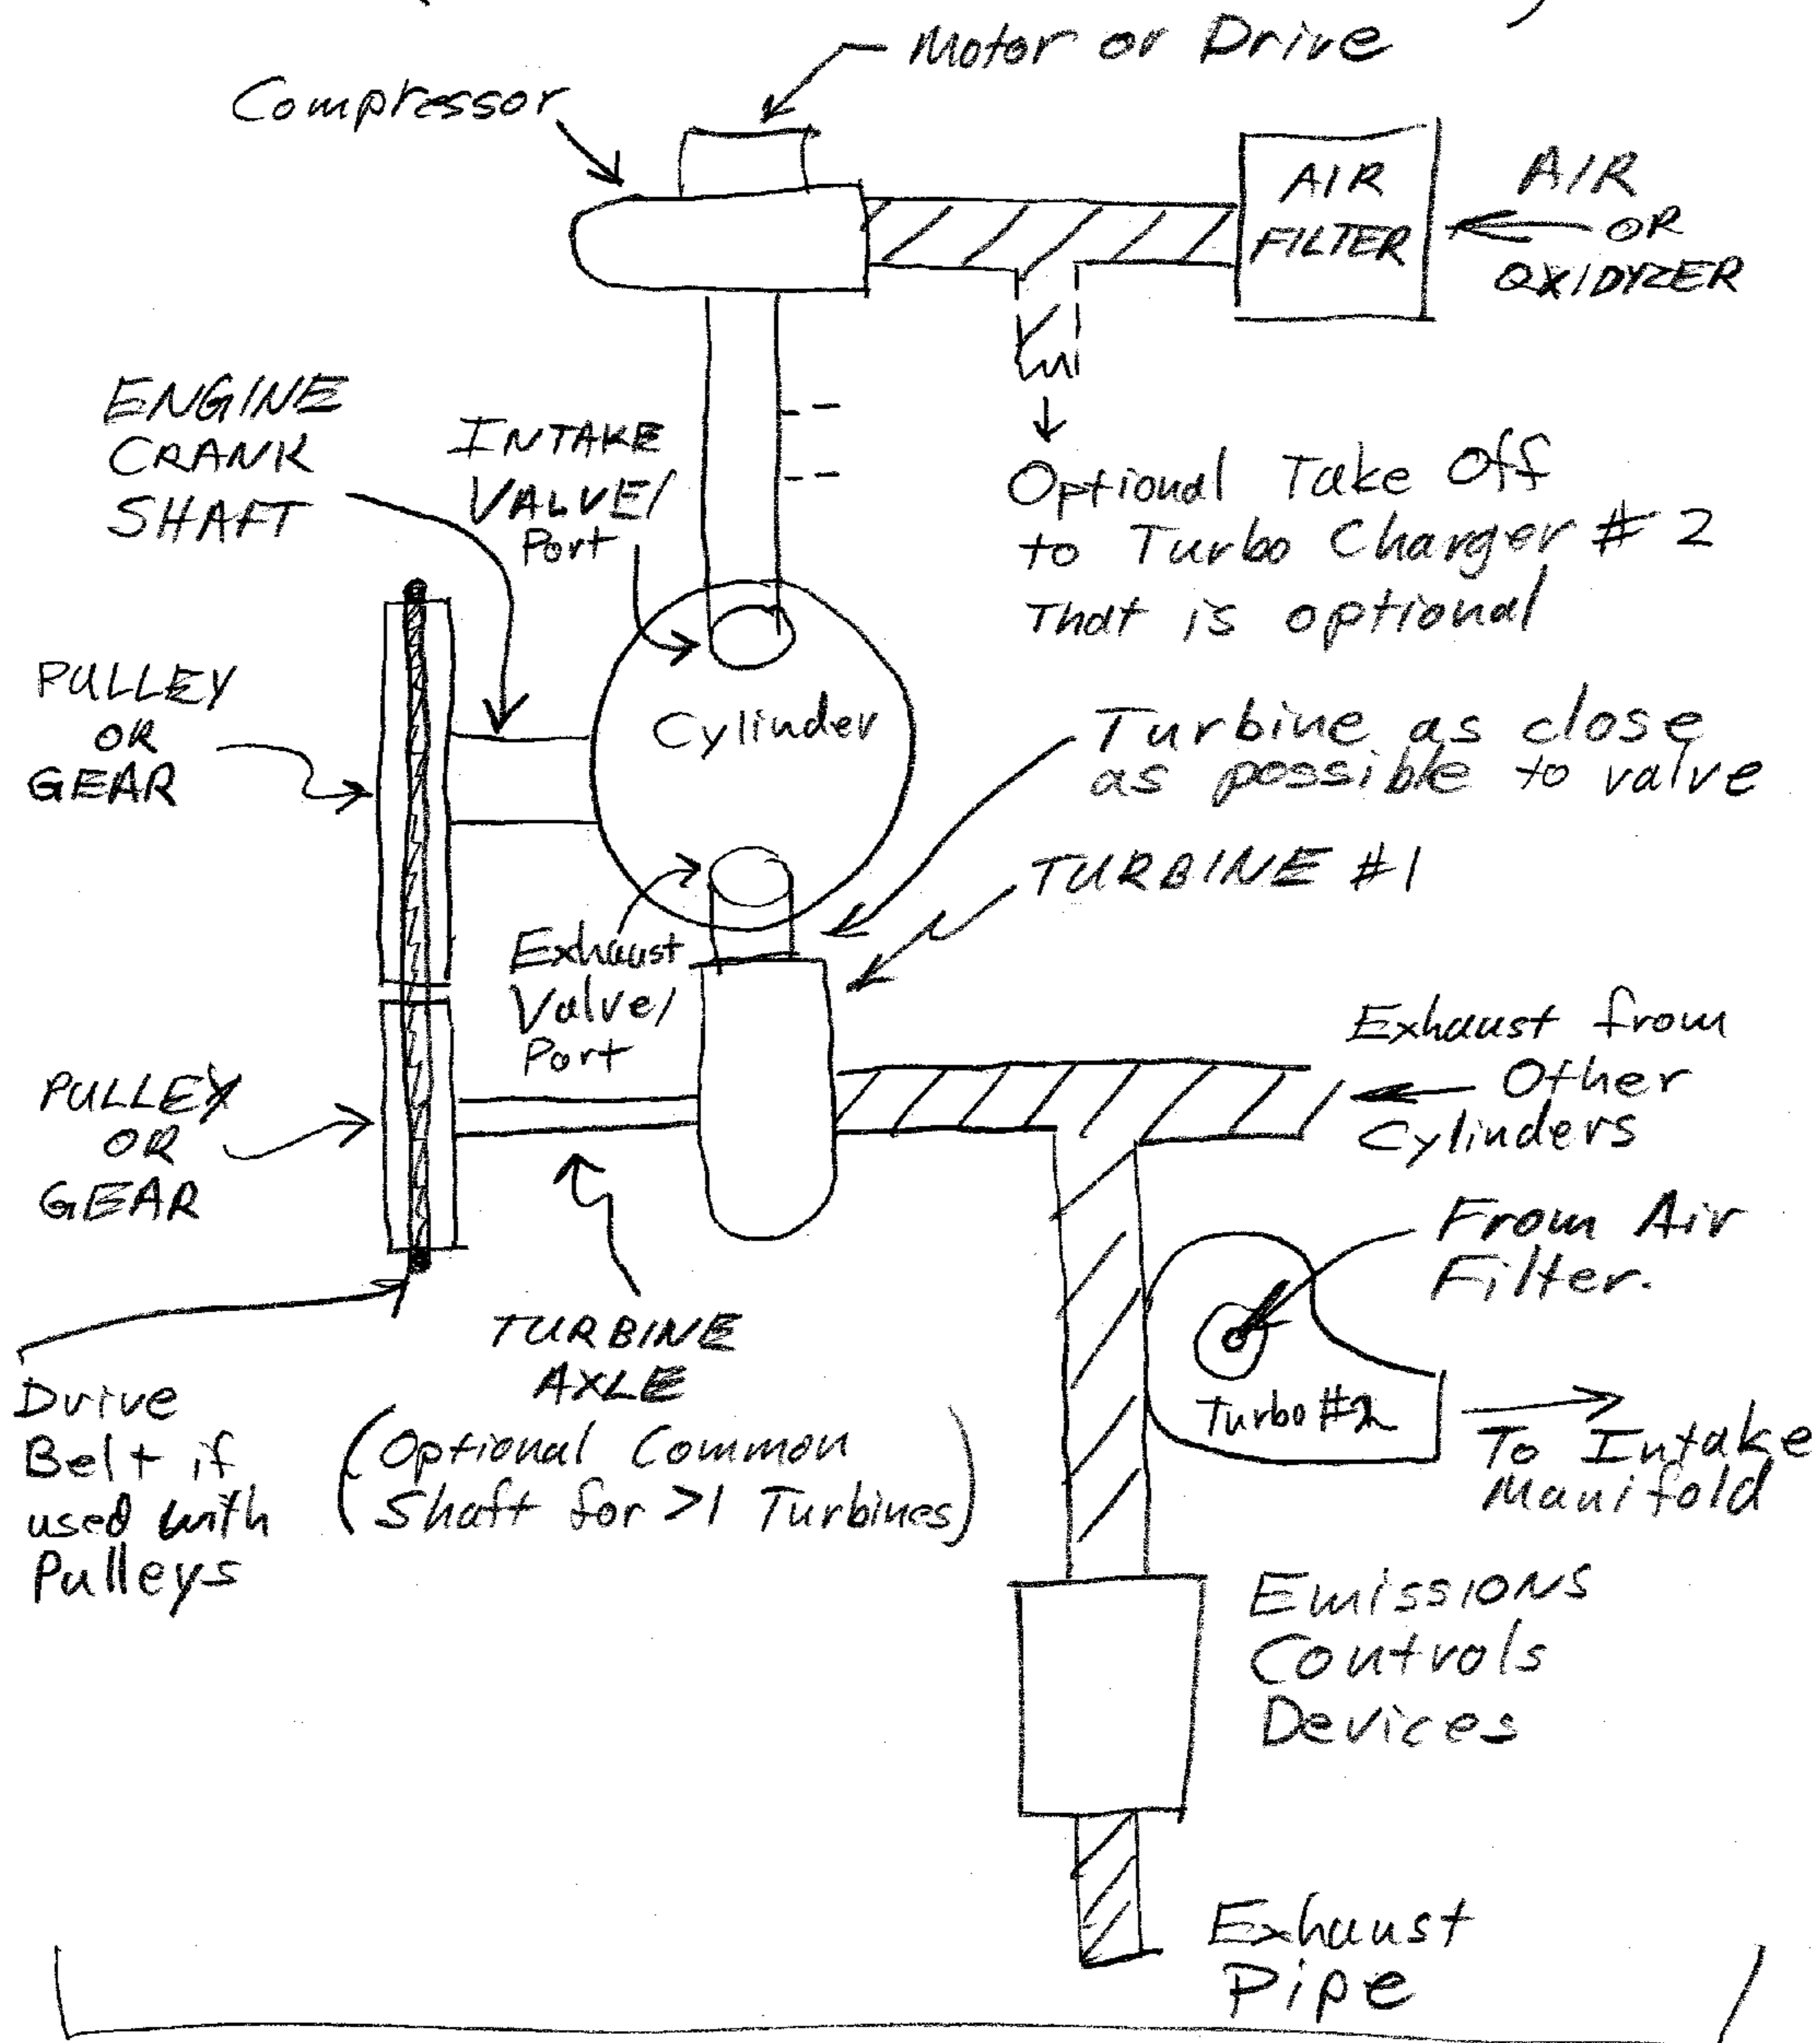 Motor or Drive
Compressor
AIR
FILTER
AIR
OR
OXIDYZER
ENGINE
CRANK
SHAFT
INTAKE
VALVE/
Port
Optional Take Off
to Turbo Charger # 2
That is optional
PULLEY
OR
GEAR
Cylinder
Turbine as close
as possible to valve
TURBINE #1
Exhaust
Valve/
Port
Exhaust from
Other
Cylinders
PULLEY
OR
GEAR
From Air
Filter.
TURBINE
AXLE
(Optional Common
Shaft for >1 Turbines)
Turbo #2
To Intake
Manifold
Drive
Belt if
used with
Pulleys
Emissions
Controls
Devices
Exhaust
Pipe